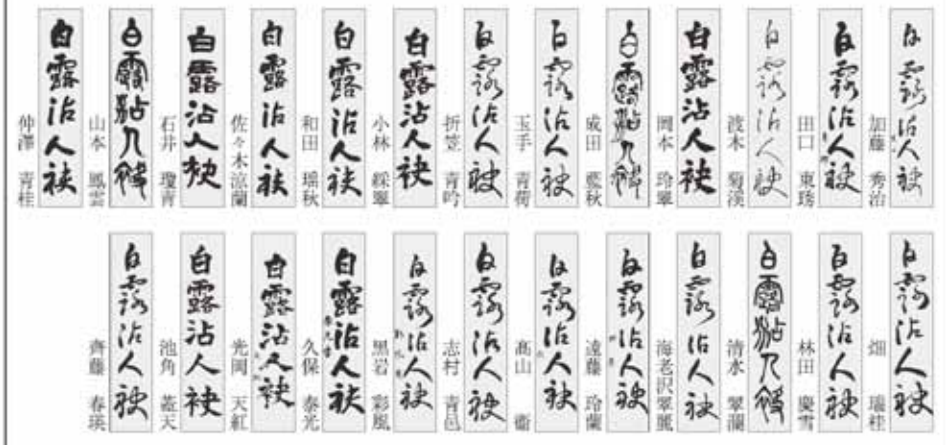 白露沾人袂
加藤 秀治
白露沾人袂
田口 東琇
白露沾人袂
渡木 菊渓
白露沾人袂
岡本 玲翠
白露沾人袂
成田 藍秋
白露沾人袂
玉手 青荷
白露沾人袂
折笠 青吟
白露沾人袂
小林 綵翠
白露沾人袂
和田 瑶秋
白露沾人袂
佐々木涼蘭
白露沾人袂
石井 瓊青
白露沾人袂
山本 鳳雲
白露沾人袂
仲澤 青桂
白露沾人袂
畑 瑞桂
白露沾人袂
林田 慶雪
白露沾人袂
清水 翠瀾
白露沾人袂
海老沢翠麗
白露沾人袂
遠藤 玲蘭
白露沾人袂
髙山 衞
白露沾人袂
志村 青邑
白露沾人袂
黒岩 彩風
白露沾人袂
久保 泰光
白露沾人袂
光岡 天紅
白露沾人袂
池角 天
白露沾人袂
齊藤 春瑛